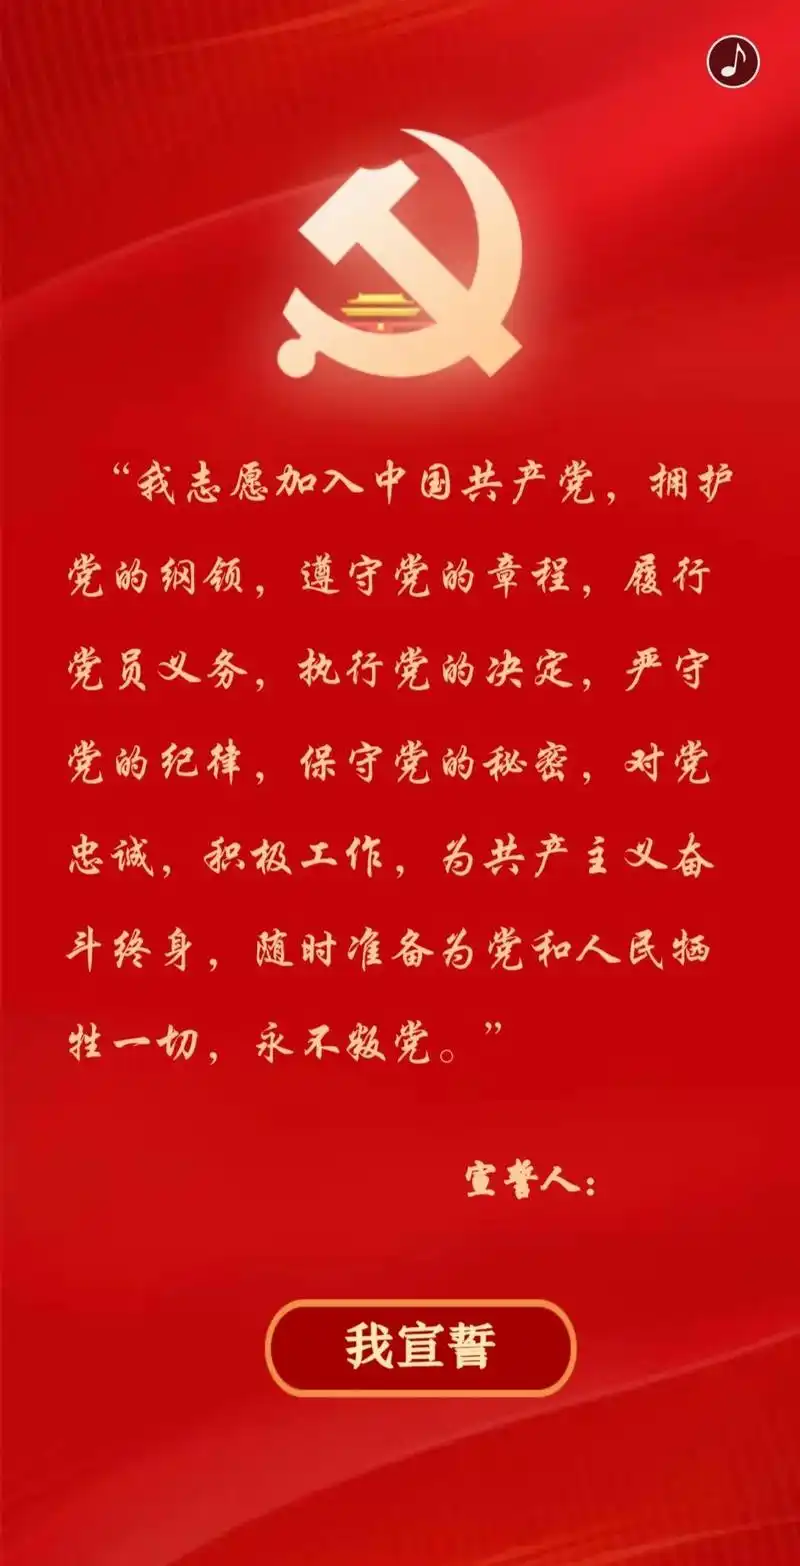 “我志愿加入中国共产党，拥护
党的纲领，遵守党的章程，履行
党员义务，执行党的决定，严守
党的纪律，保守党的秘密，对党
忠诚，积极工作，为共产主义奋
斗终身，随时准备为党和人民牺
牲一切，永不叛党。”
宣誓人：
我宣誓